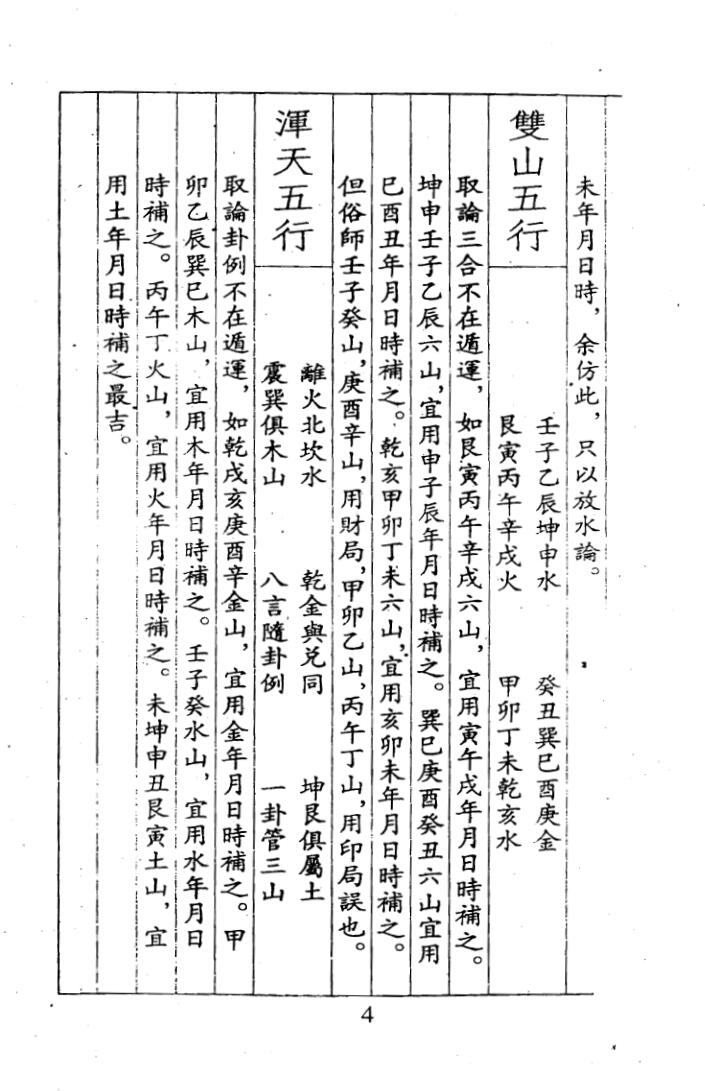 未年月日時，余仿此，只以放水論。
雙山五行
壬子乙辰坤申水　癸丑巽巳酉庚金
艮寅丙午辛戌火　甲卯丁未乾亥水
取論三合不在遁運，如艮寅丙午辛戌六山，宜用寅午戌年月日時補之。
坤申壬子乙辰六山，宜用申子辰年月日時補之。巽巳庚酉癸丑六山宜用
巳酉丑年月日時補之。乾亥甲卯丁未六山，宜用亥卯未年月日時補之。
但俗師壬子癸山，庚酉辛山，用財局，甲卯乙山，丙午丁山，用印局誤也。
渾天五行
離火北坎水　乾金與兑同　坤艮俱屬土
震巽俱木山　八言隨卦例　一卦管三山
取論卦例不在遁運，如乾戌亥庚酉辛金山，宜用金年月日時補之。甲
卯乙辰巽巳木山，宜用木年月日時補之。壬子癸水山，宜用水年月日
時補之。丙午丁火山，宜用火年月日時補之。未坤申丑艮寅土山，宜
用土年月日時補之最吉。
4